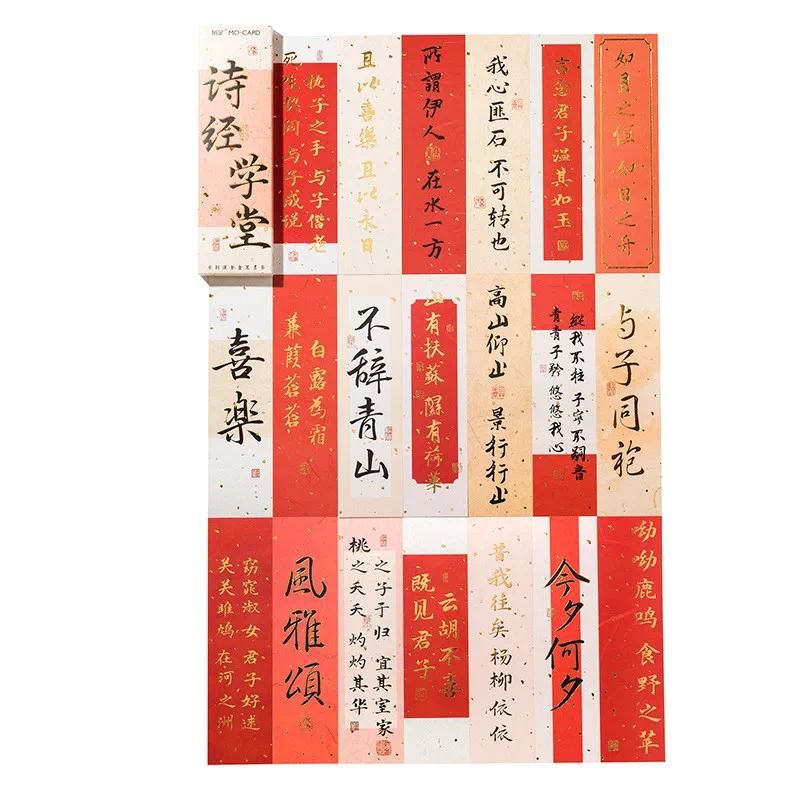 MO-CARD
诗经
学堂
死生契阔 与子成说
执子之手 与子偕老
且以喜樂 且以永日
所謂伊人 在水一方
我心匪石 不可转也
言念君子 温其如玉
如月之恒 如日之升
喜楽
蒹葭蒼蒼
白露為霜
不辞青山
山有扶蘇 隰有荷華
高山仰止 景行行止
青青子衿 悠悠我心
縱我不往 子寧不嗣音
与子同袍
关关雎鸠 在河之洲
窈窕淑女 君子好逑
風雅頌
桃之夭夭 灼灼其华
之子于归 宜其室家
既见君子
云胡不喜
昔我往矣 杨柳依依
今夕何夕
呦呦鹿鸣 食野之苹